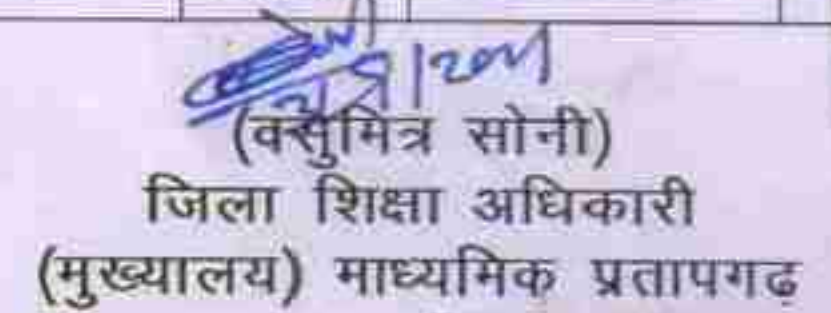 (वसुमित्र सोनी)
जिला शिक्षा अधिकारी
(मुख्यालय) माध्यमिक प्रतापगढ़